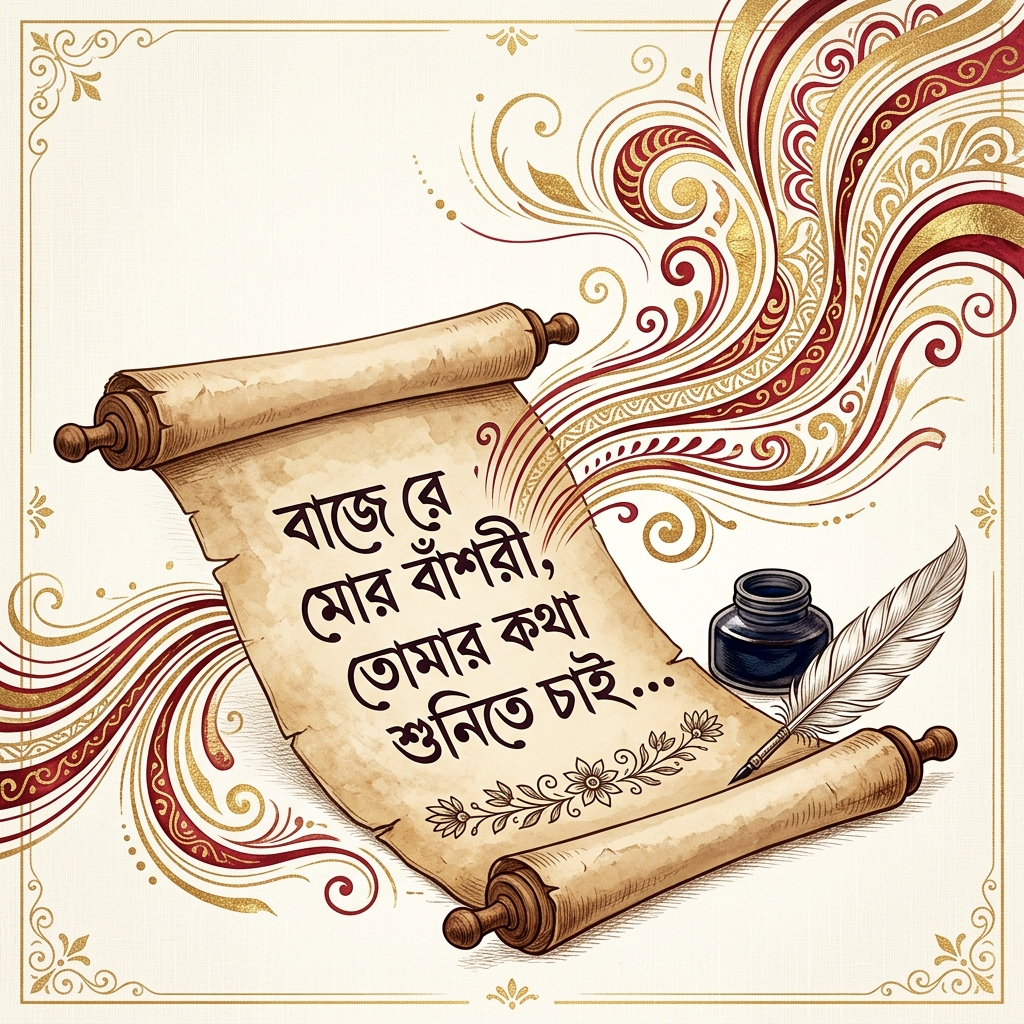 বাজে রে
মোর বাঁশরী,
তোমার কথা
শুনিতে চাই...